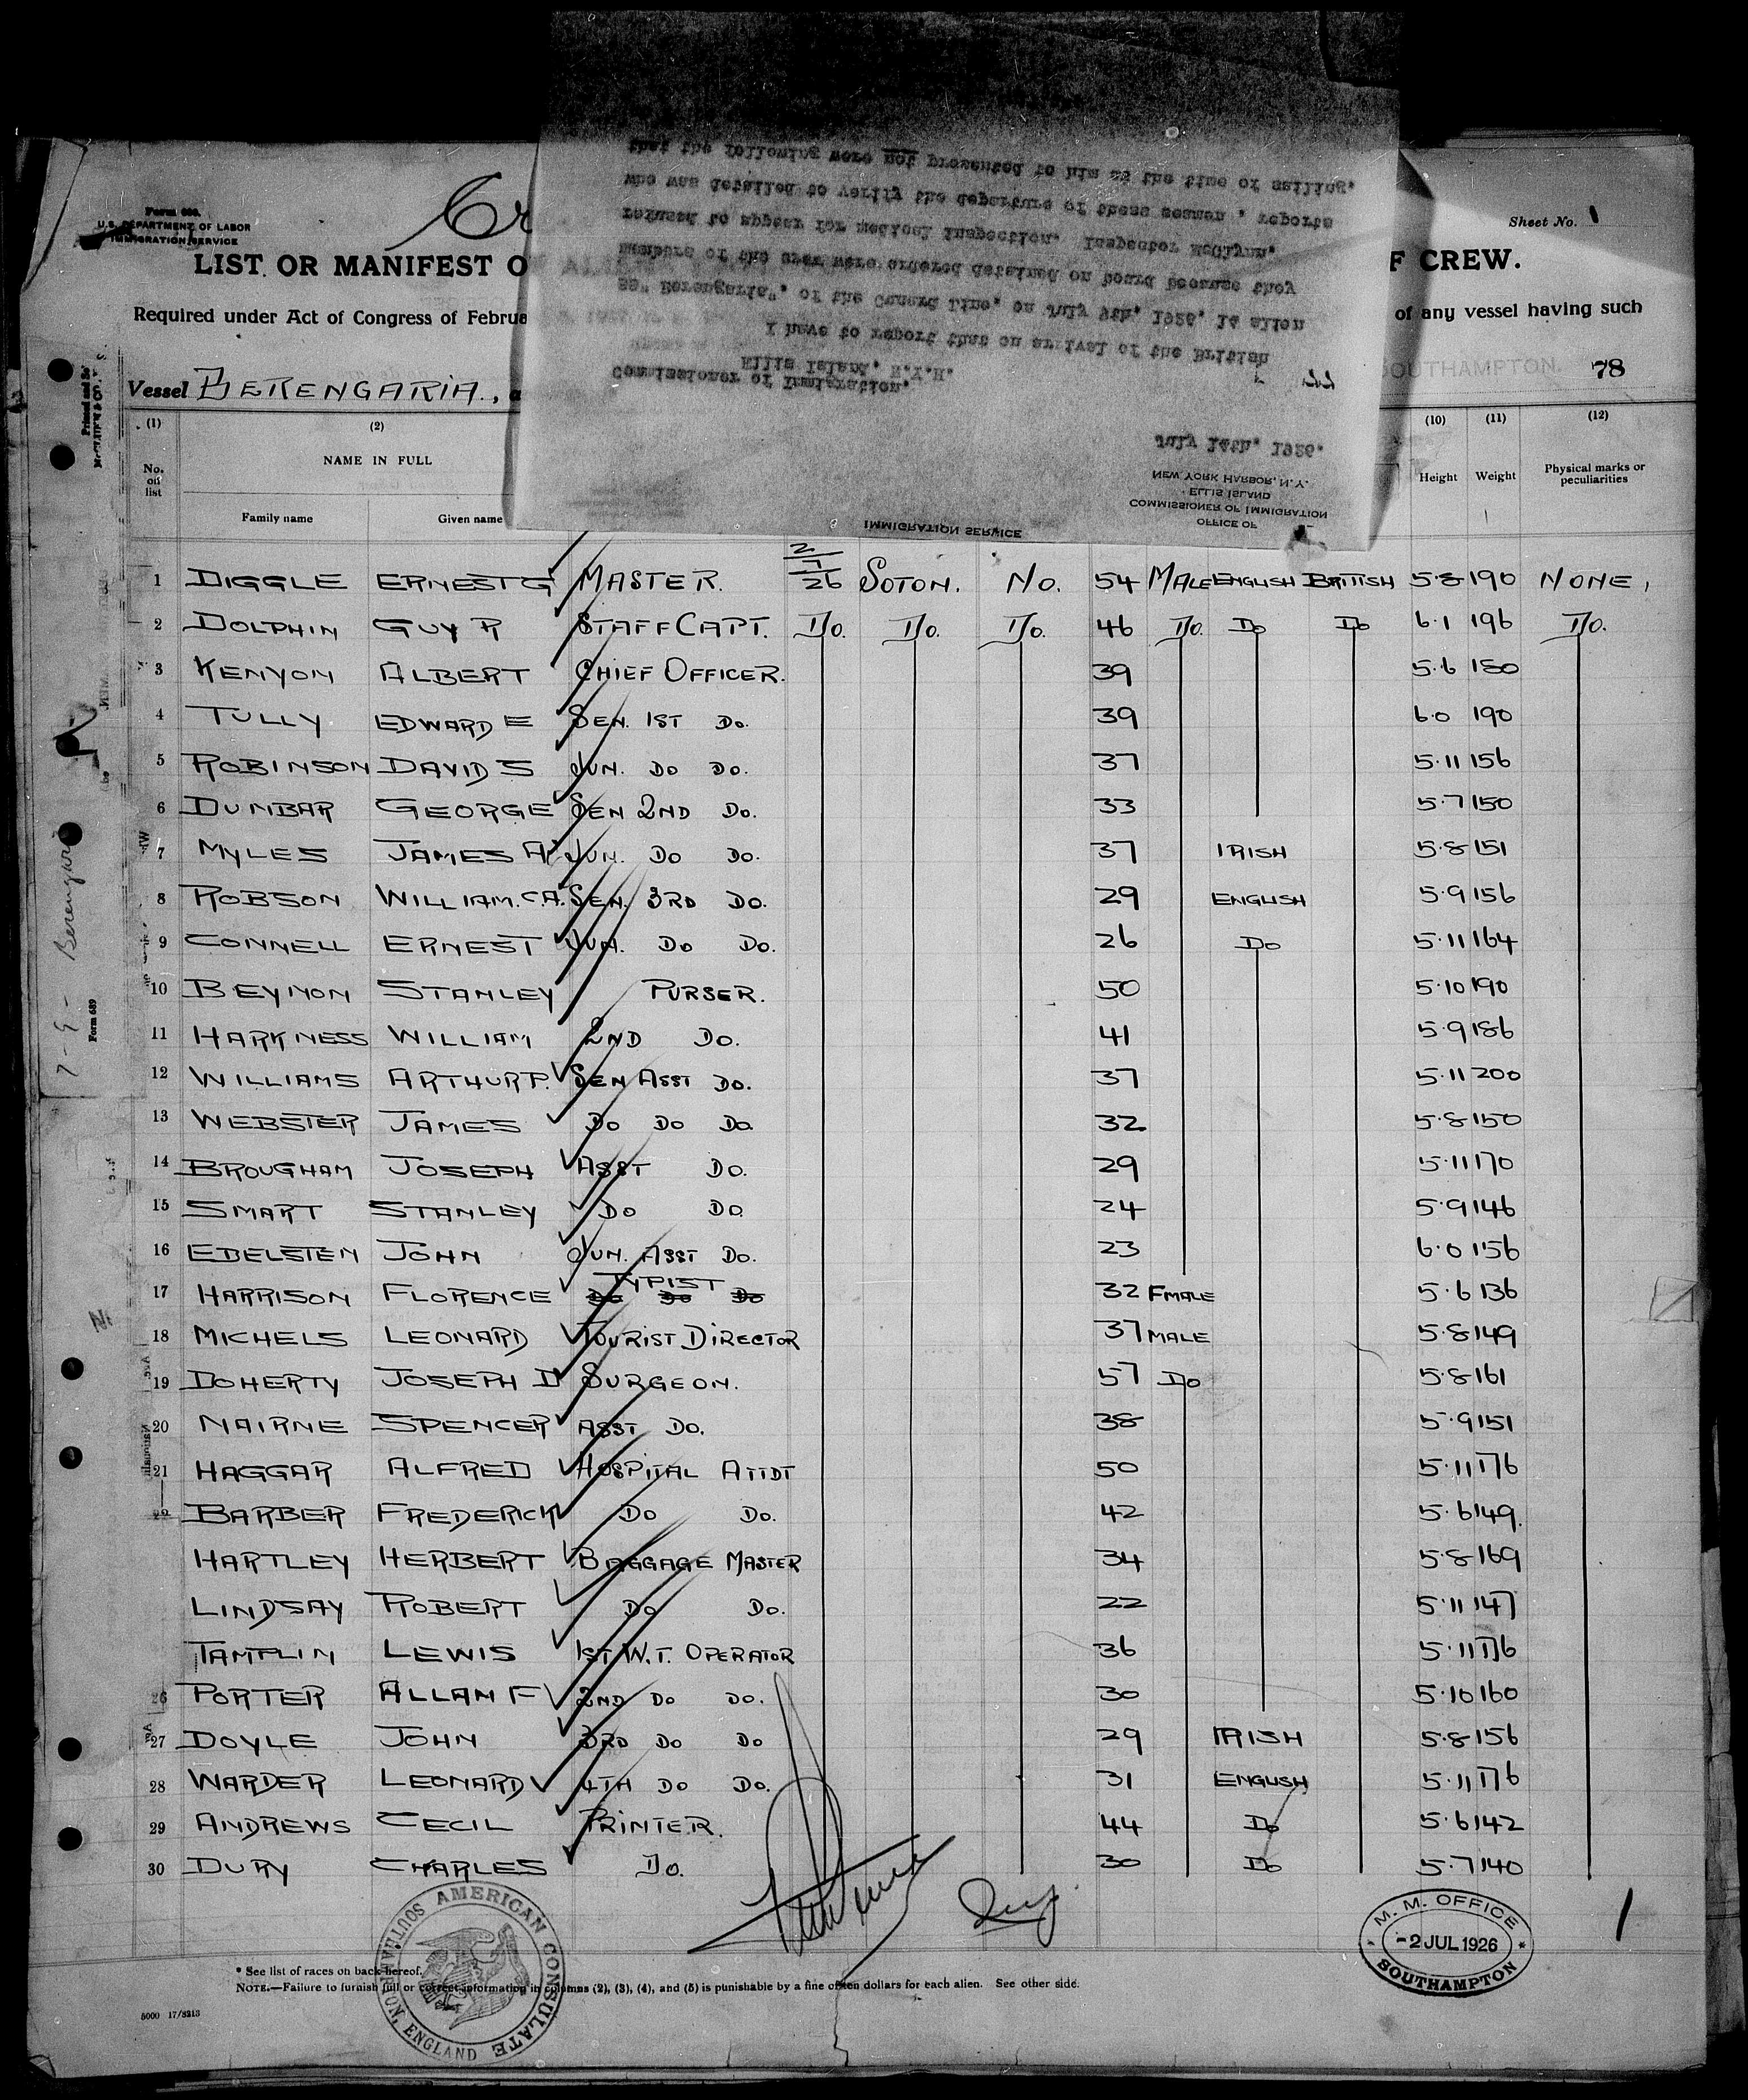 Form 689.
U.S. DEPARTMENT OF LABOR
IMMIGRATION SERVICE
Sheet No. 1
LIST OR MANIFEST O
F CREW.
Required under Act of Congress of Februa
of any vessel having such
Vessel BERENGARIA.,
SOUTHAMPTON.
78
IMMIGRATION SERVICE
OFFICE OF
COMMISSIONER OF IMMIGRATION
ELLIS ISLAND
NEW YORK HARBOR, N.Y.
July 14th, 1926.
Commissioner of Immigration,
Ellis Island, N.Y.H.
I have to report that on arrival of the British
ss" Berengaria", of the Cunard Line, on July 9th, 1926, 14 alien
members of the crew were ordered detained on board because they
refused to appear for medical inspection. Inspector McGlynn,
who was detailed to verify the departure of these seamen, reports
that the following were not presented to him at the time of sailing.
(1) (2) (10) (11) (12)
No. on list NAME IN FULL Height Weight Physical marks or peculiarities
Family name Given name
1 DIGGLE ERNEST G MASTER. 2/7/26 SOTON. NO. 54 MALE ENGLISH BRITISH 5.8 190 NONE,
2 DOLPHIN GUY R STAFF CAPT. DO. DO. DO. 46 DO. DO DO 6.1 196 DO.
3 KENYON ALBERT CHIEF OFFICER. 39 5.6 180
4 TULLY EDWARD E SEN. 1ST DO. 39 6.0 190
5 ROBINSON DAVID S JUN. DO DO. 37 5.11 156
6 DUNBAR GEORGE SEN 2ND DO. 33 5.7 150
7 MYLES JAMES A JUN. DO DO. 37 IRISH 5.8 151
8 ROBSON WILLIAM.C.A. SEN. 3RD DO. 29 ENGLISH 5.9 156
9 CONNELL ERNEST JUN. DO DO. 26 DO 5.11 164
10 BEYNON STANLEY PURSER. 50 5.10 190
11 HARKNESS WILLIAM 2ND DO. 41 5.9 186
12 WILLIAMS ARTHUR P. SEN ASST DO. 37 5.11 200
13 WEBSTER JAMES DO DO DO 32 5.8 150
14 BROUGHAM JOSEPH ASST DO. 29 5.11 170
15 SMART STANLEY DO DO 24 5.9 146
16 EDELSTEN JOHN JUN. ASST DO. 23 6.0 156
17 HARRISON FLORENCE TYPIST DO DO DO 32 FMALE 5.6 136
18 MICHELS LEONARD TOURIST DIRECTOR 37 MALE 5.8 149
19 DOHERTY JOSEPH D SURGEON. 57 DO 5.8 161
20 NAIRNE SPENCER ASST DO. 38 5.9 151
21 HAGGAR ALFRED HOSPITAL ATTDT 50 5.11 176
22 BARBER FREDERICK DO DO. 42 5.6 149.
HARTLEY HERBERT BAGGAGE MASTER 34 5.8 169
LINDSAY ROBERT DO DO. 22 5.11 147
TAMPLIN LEWIS 1ST W.T. OPERATOR 36 5.11 176
26 PORTER ALLAN F 2ND DO DO. 30 5.10 160
27 DOYLE JOHN 3RD DO DO 29 IRISH 5.8 156
28 WARDER LEONARD 4TH DO DO. 31 ENGLISH 5.11 176
29 ANDREWS CECIL PRINTER. 44 DO 5.6 142
30 DURY CHARLES DO. 30 DO 5.7 140
AMERICAN CONSULATE
SOUTHAMPTON, ENGLAND
M. M. OFFICE
-2 JUL 1926
SOUTHAMPTON
1
* See list of races on back hereof.
NOTE.—Failure to furnish full or correct information in columns (2), (3), (4), and (5) is punishable by a fine of ten dollars for each alien. See other side.
5000 17/8213
7-9- Berengaria
Form 689